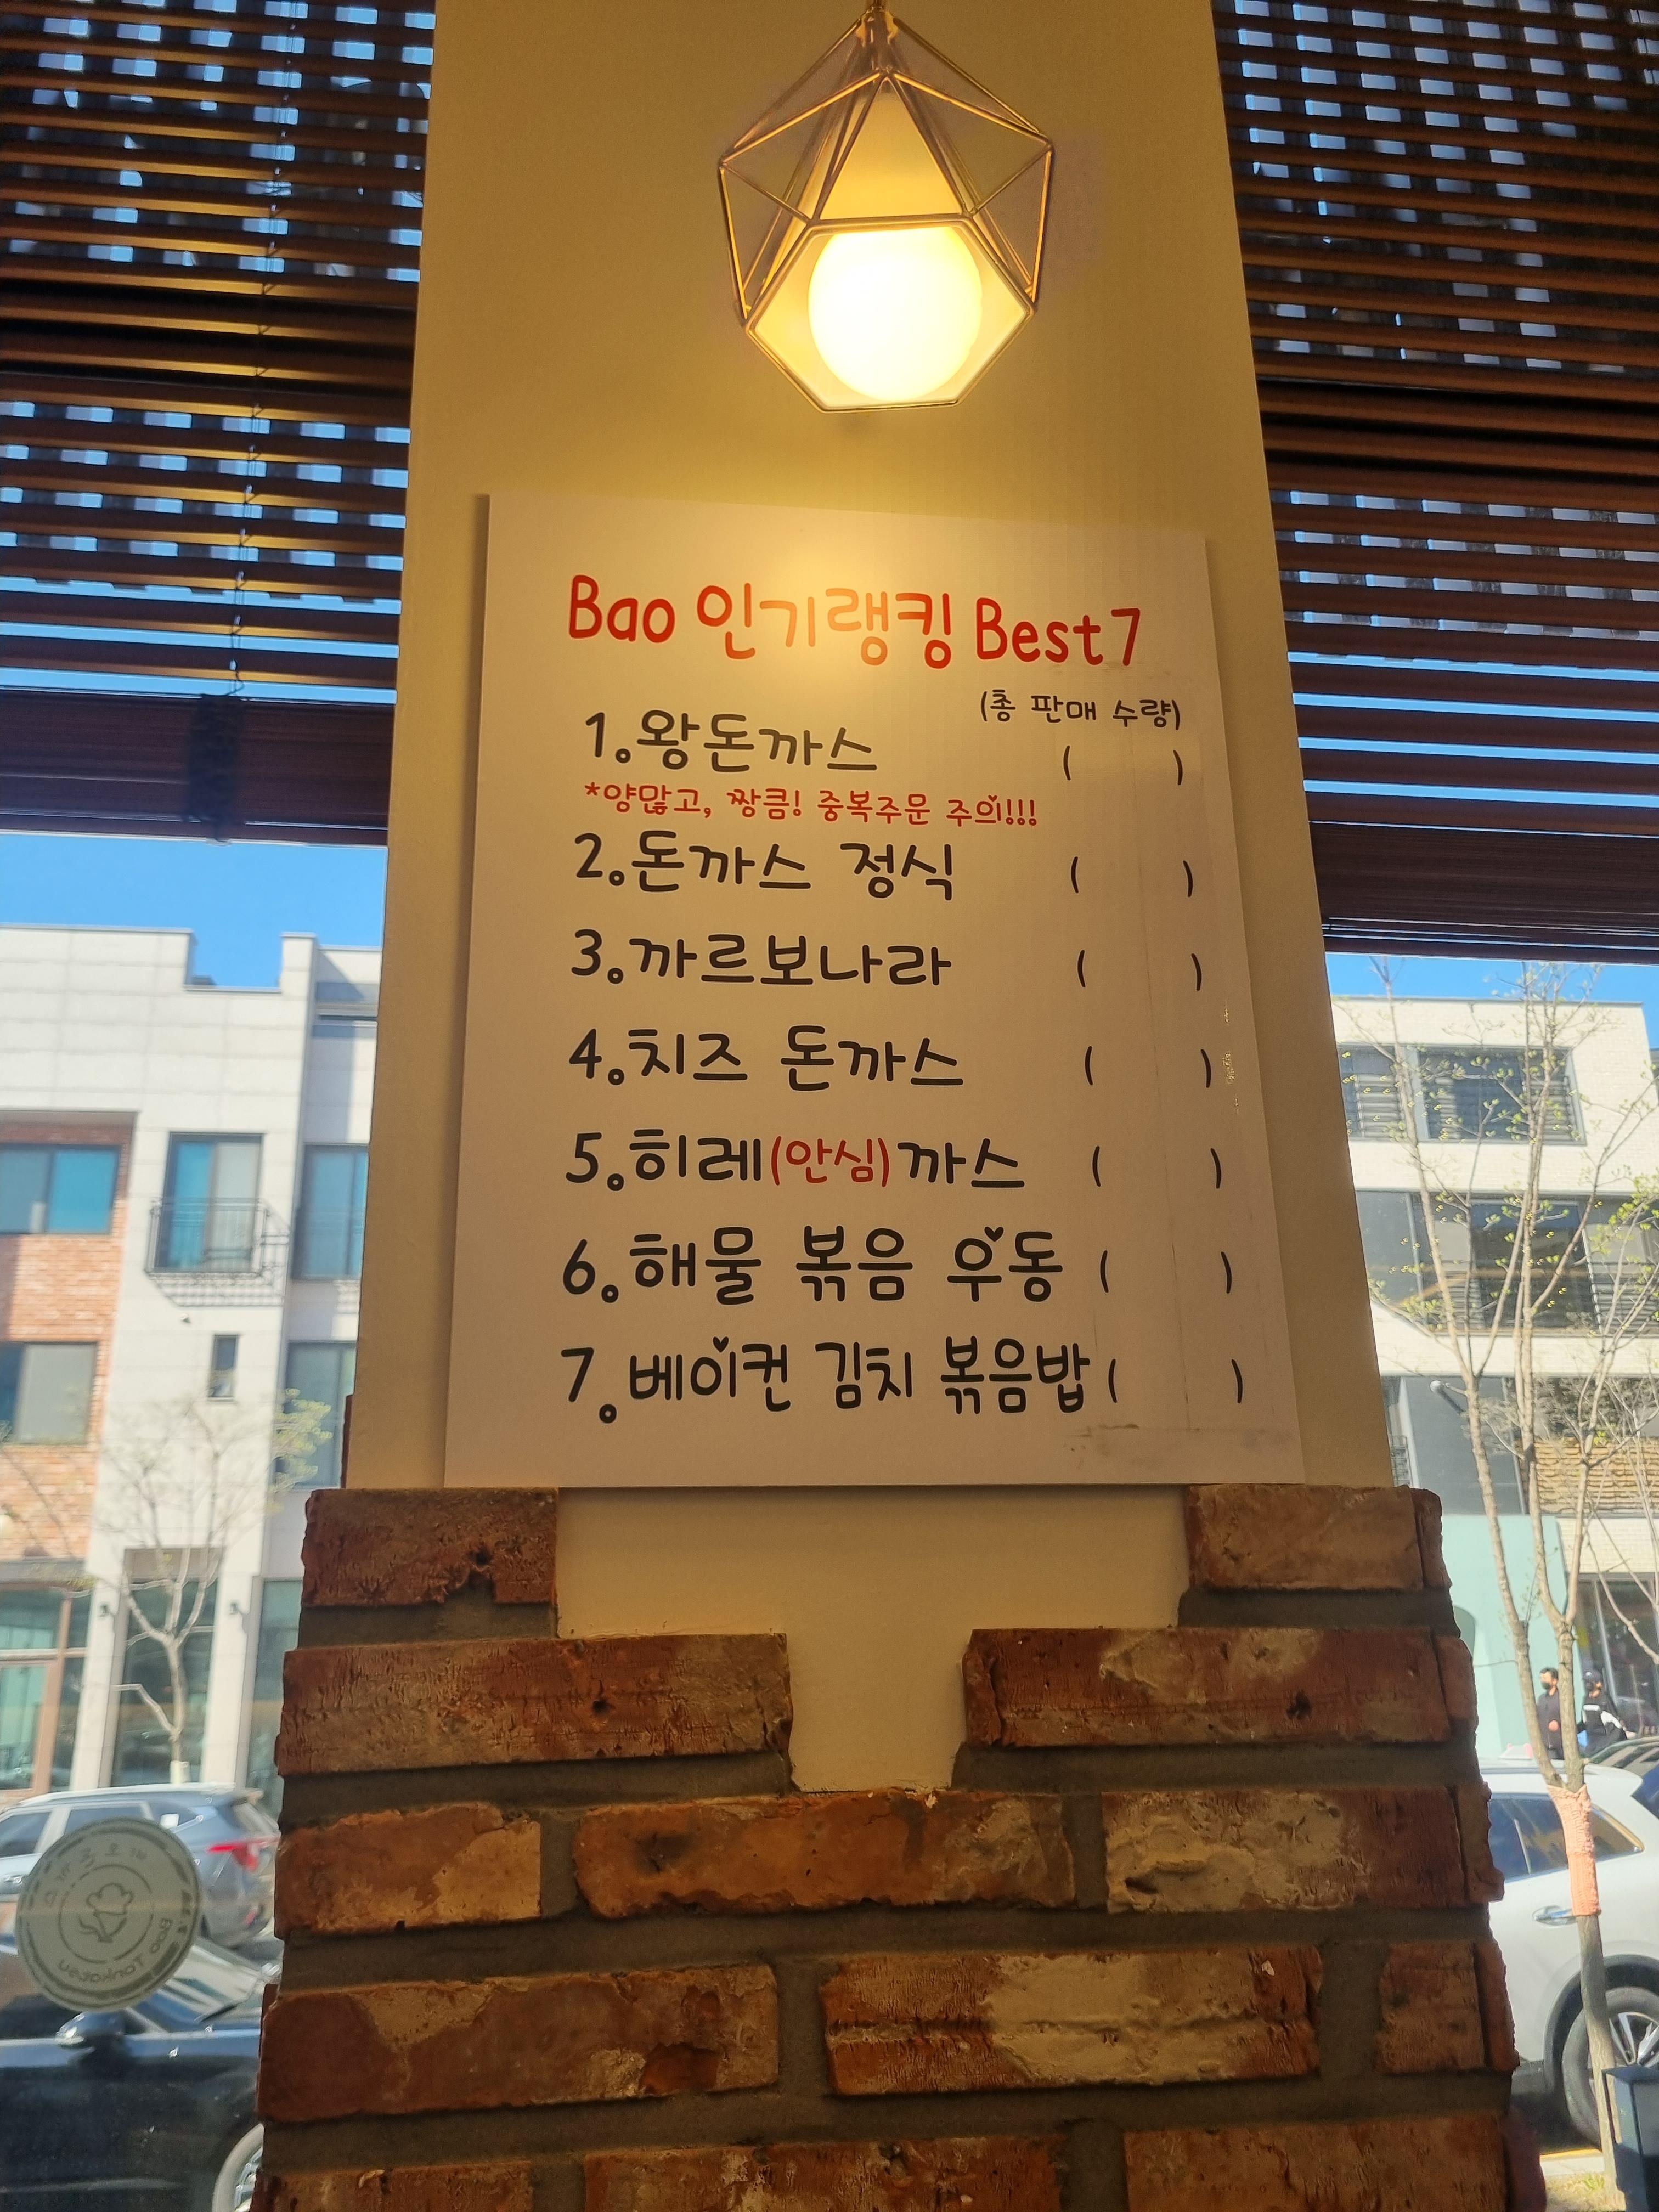 Bao 인기랭킹 Best7
(총 판매 수량)
1.왕돈까스 ( )
*양많고, 짱큼! 중복주문 주의!!!
2.돈까스 정식 ( )
3.까르보나라 ( )
4.치즈 돈까스 ( )
5.히레(안심)까스 ( )
6.해물 볶음 우동 ( )
7.베이컨 김치 볶음밥 ( )
Bao Tonkatsu